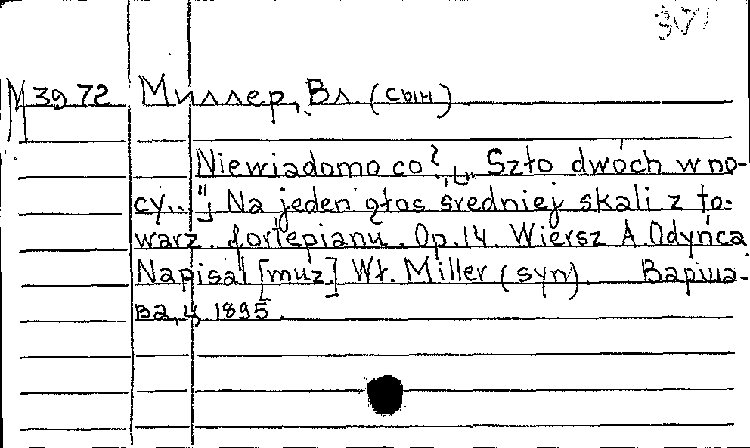 М 39 72 Миллер, Вл. (сын)
Niewiadomo co? [„Szło dwóch w no-
cy..."] Na jeden głos średniej skali z to-
warz. fortepianu. Op. 14. Wiersz A. Odyńca
Napisał [muz.] Wł. Miller (syn). Варша-
ва, ц. 1895.